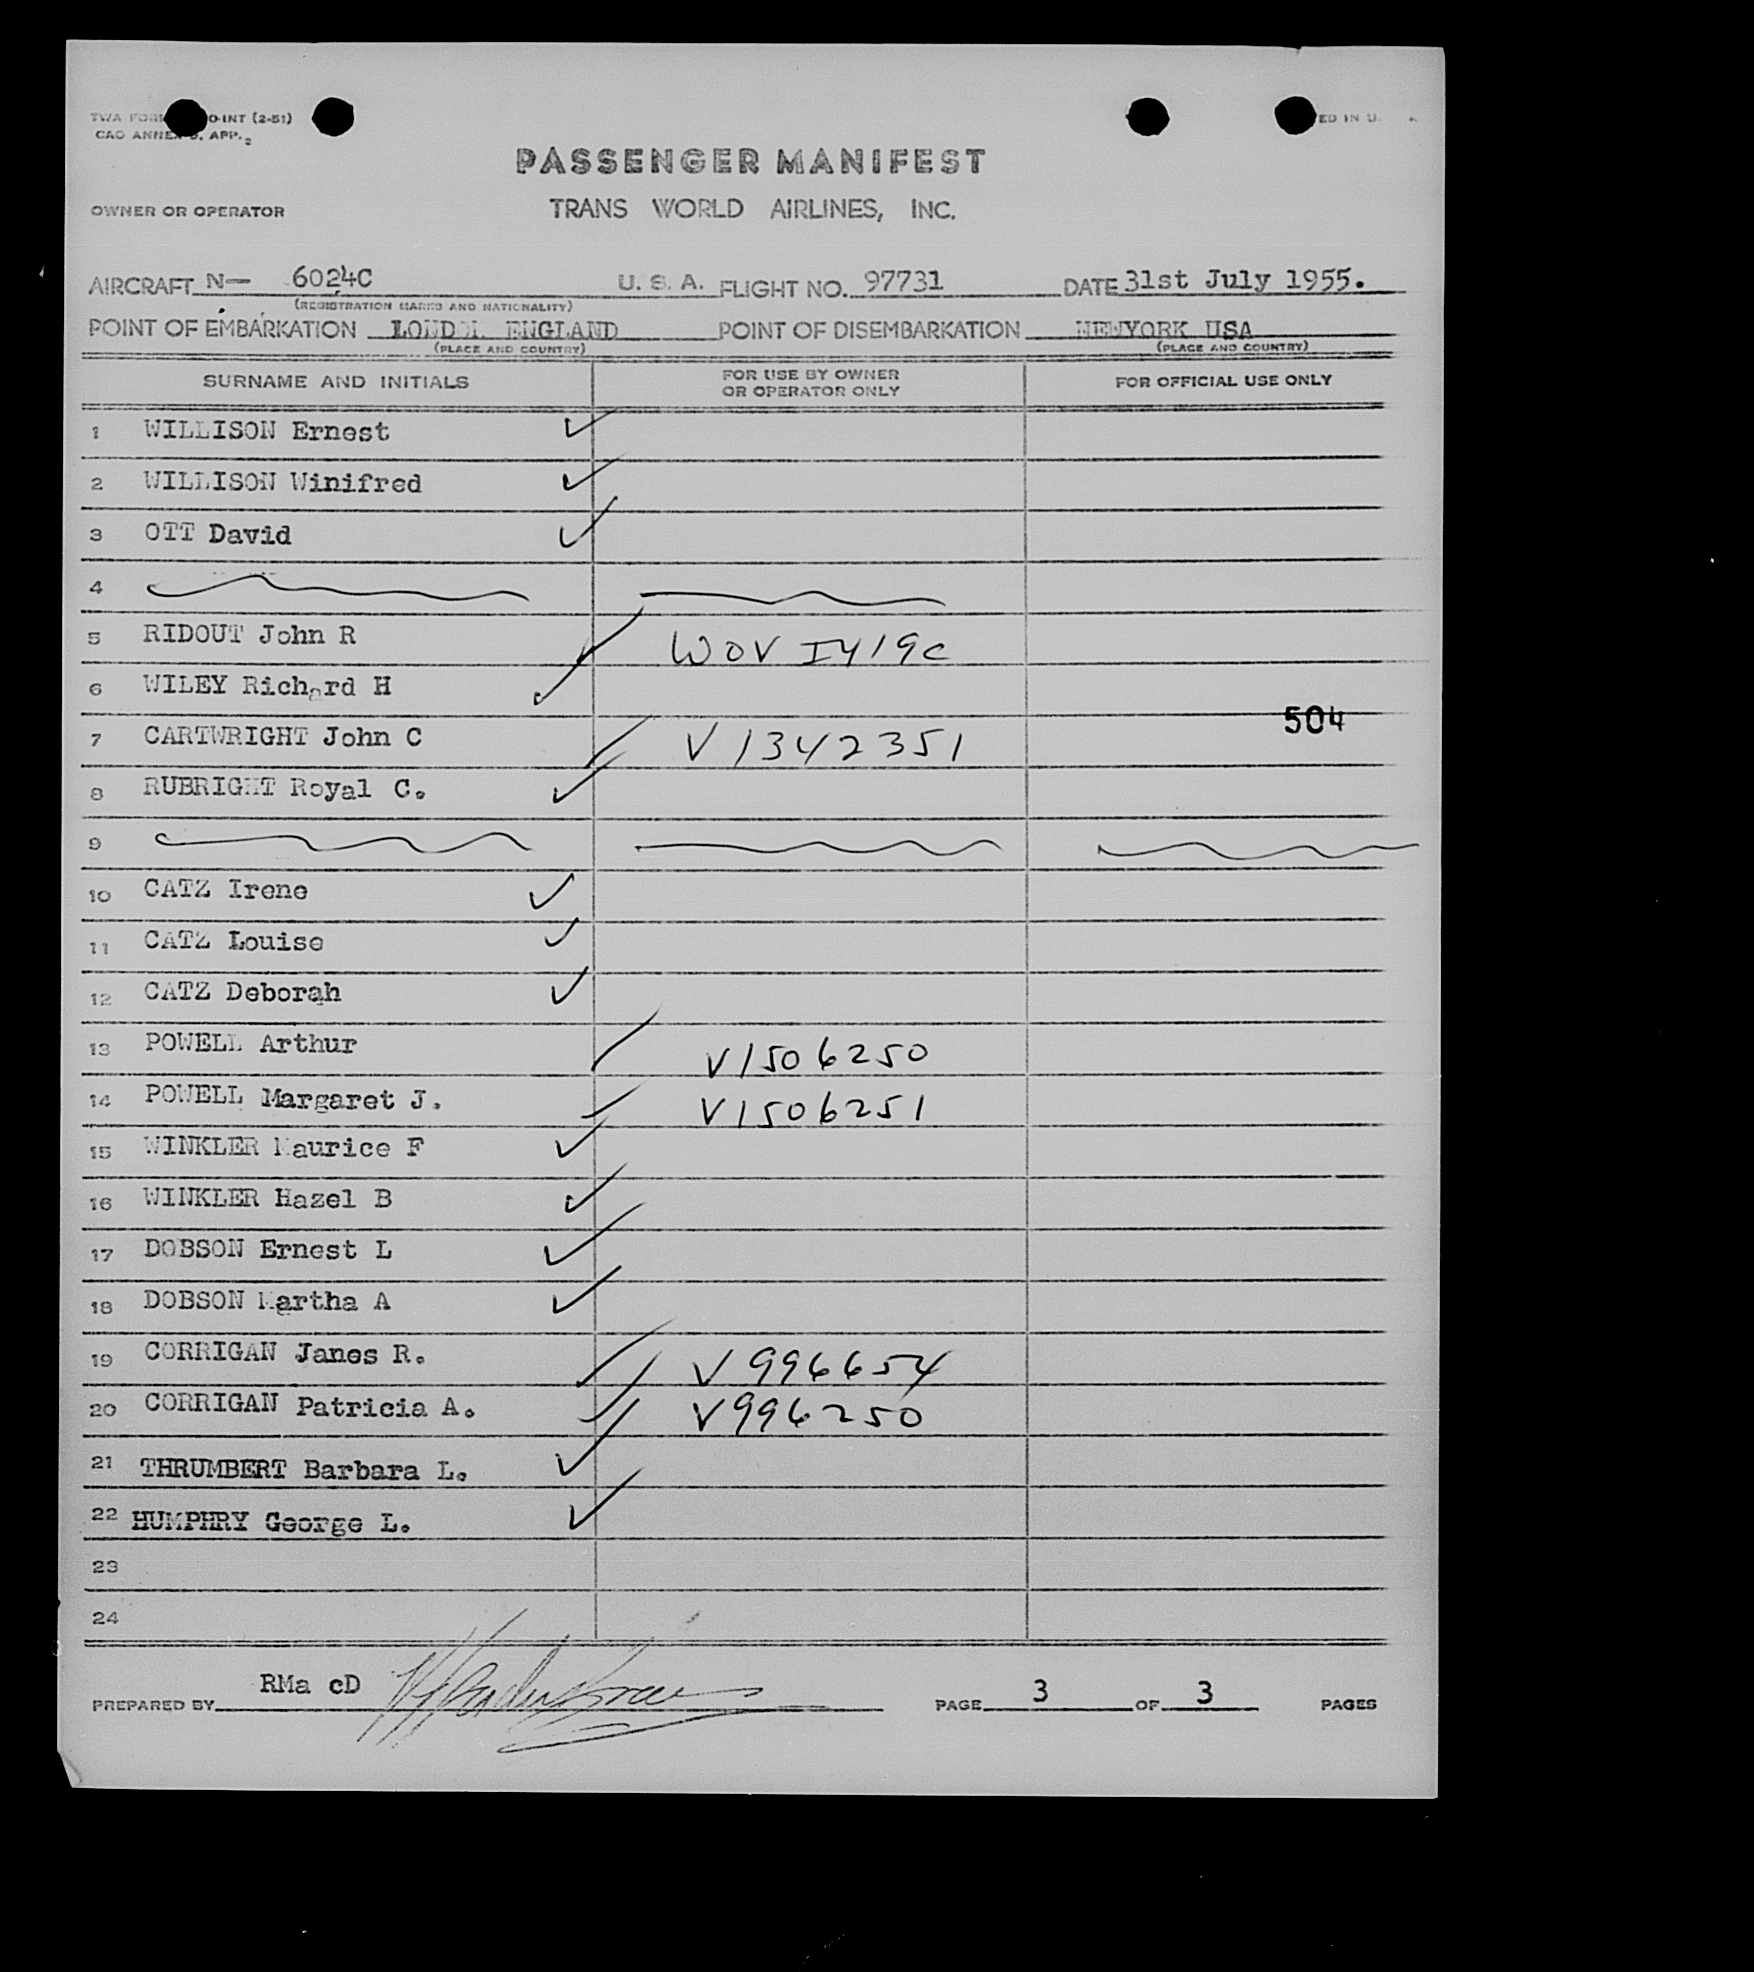 TWA FORM O-INT (2-51)
CAO ANNEX 9, APP. 2
ED IN U.
PASSENGER MANIFEST
OWNER OR OPERATOR
TRANS WORLD AIRLINES, INC.
AIRCRAFT N— 6024C U. S. A. FLIGHT NO. 97731 DATE 31st July 1955.
(REGISTRATION MARKS AND NATIONALITY)
POINT OF EMBARKATION LONDON ENGLAND POINT OF DISEMBARKATION NEWYORK USA
(PLACE AND COUNTRY) (PLACE AND COUNTRY)
SURNAME AND INITIALS FOR USE BY OWNER OR OPERATOR ONLY FOR OFFICIAL USE ONLY
1 WILLISON Ernest
2 WILLISON Winifred
3 OTT David
4
5 RIDOUT John R WOV I419c
6 WILEY Richard H
504
7 CARTWRIGHT John C V1342351
8 RUBRIGHT Royal C.
9
10 CATZ Irene
11 CATZ Louise
12 CATZ Deborah
13 POWELL Arthur V1506250
14 POWELL Margaret J. V1506251
15 WINKLER Maurice F
16 WINKLER Hazel B
17 DOBSON Ernest L
18 DOBSON Martha A
19 CORRIGAN James R. V996654
20 CORRIGAN Patricia A. V996250
21 THRUMBERT Barbara L.
22 HUMPHRY George L.
23
24
PREPARED BY RMa cD PAGE 3 OF 3 PAGES